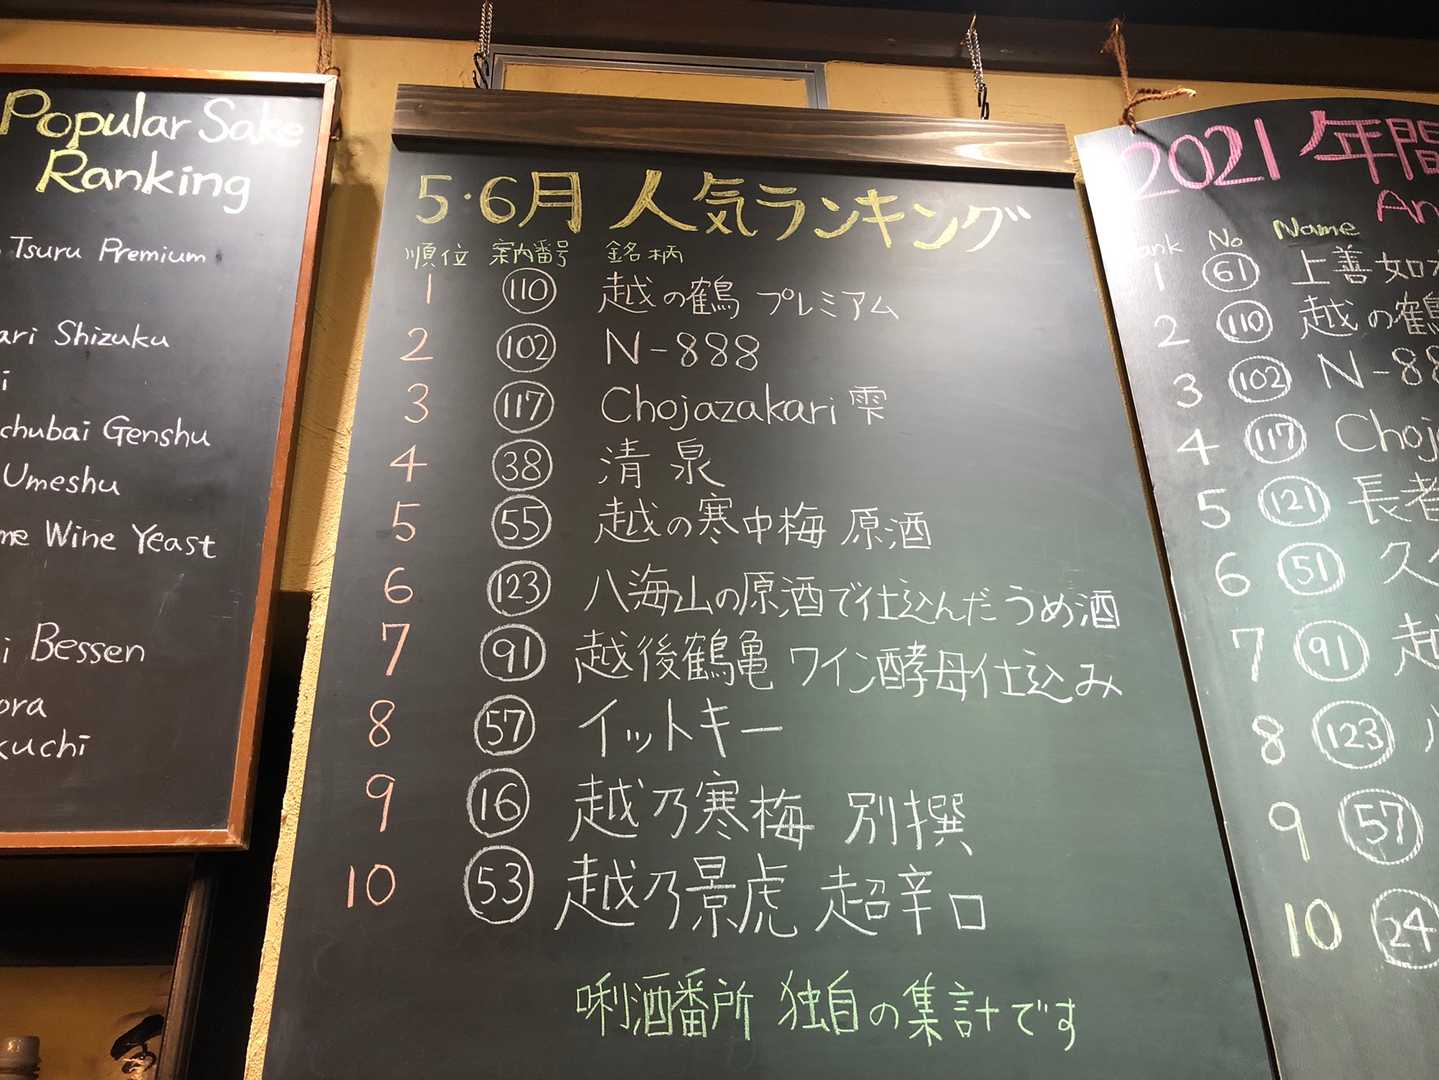 Popular Sake
Ranking
Tsuru Premium
ari Shizuku
i
chubai Genshu
Umeshu
me Wine Yeast
i Bessen
ora
kuchi
5・6月 人気ランキング
順位 案内番号 銘柄
1 110 越の鶴 プレミアム
2 102 N-888
3 117 Chojazakari 雫
4 38 清泉
5 55 越の寒中梅 原酒
6 123 八海山の原酒で仕込んだうめ酒
7 91 越後鶴亀 ワイン酵母仕込み
8 57 イットキー
9 16 越乃寒梅 別撰
10 53 越乃景虎 超辛口
唎酒番所 独自の集計です
2021 年間
An
ank No Name
1 61 上善如水
2 110 越の鶴
3 102 N-88
4 117 Choj
5 121 長者
6 51 久
7 91 越
8 123 八
9 57
10 24